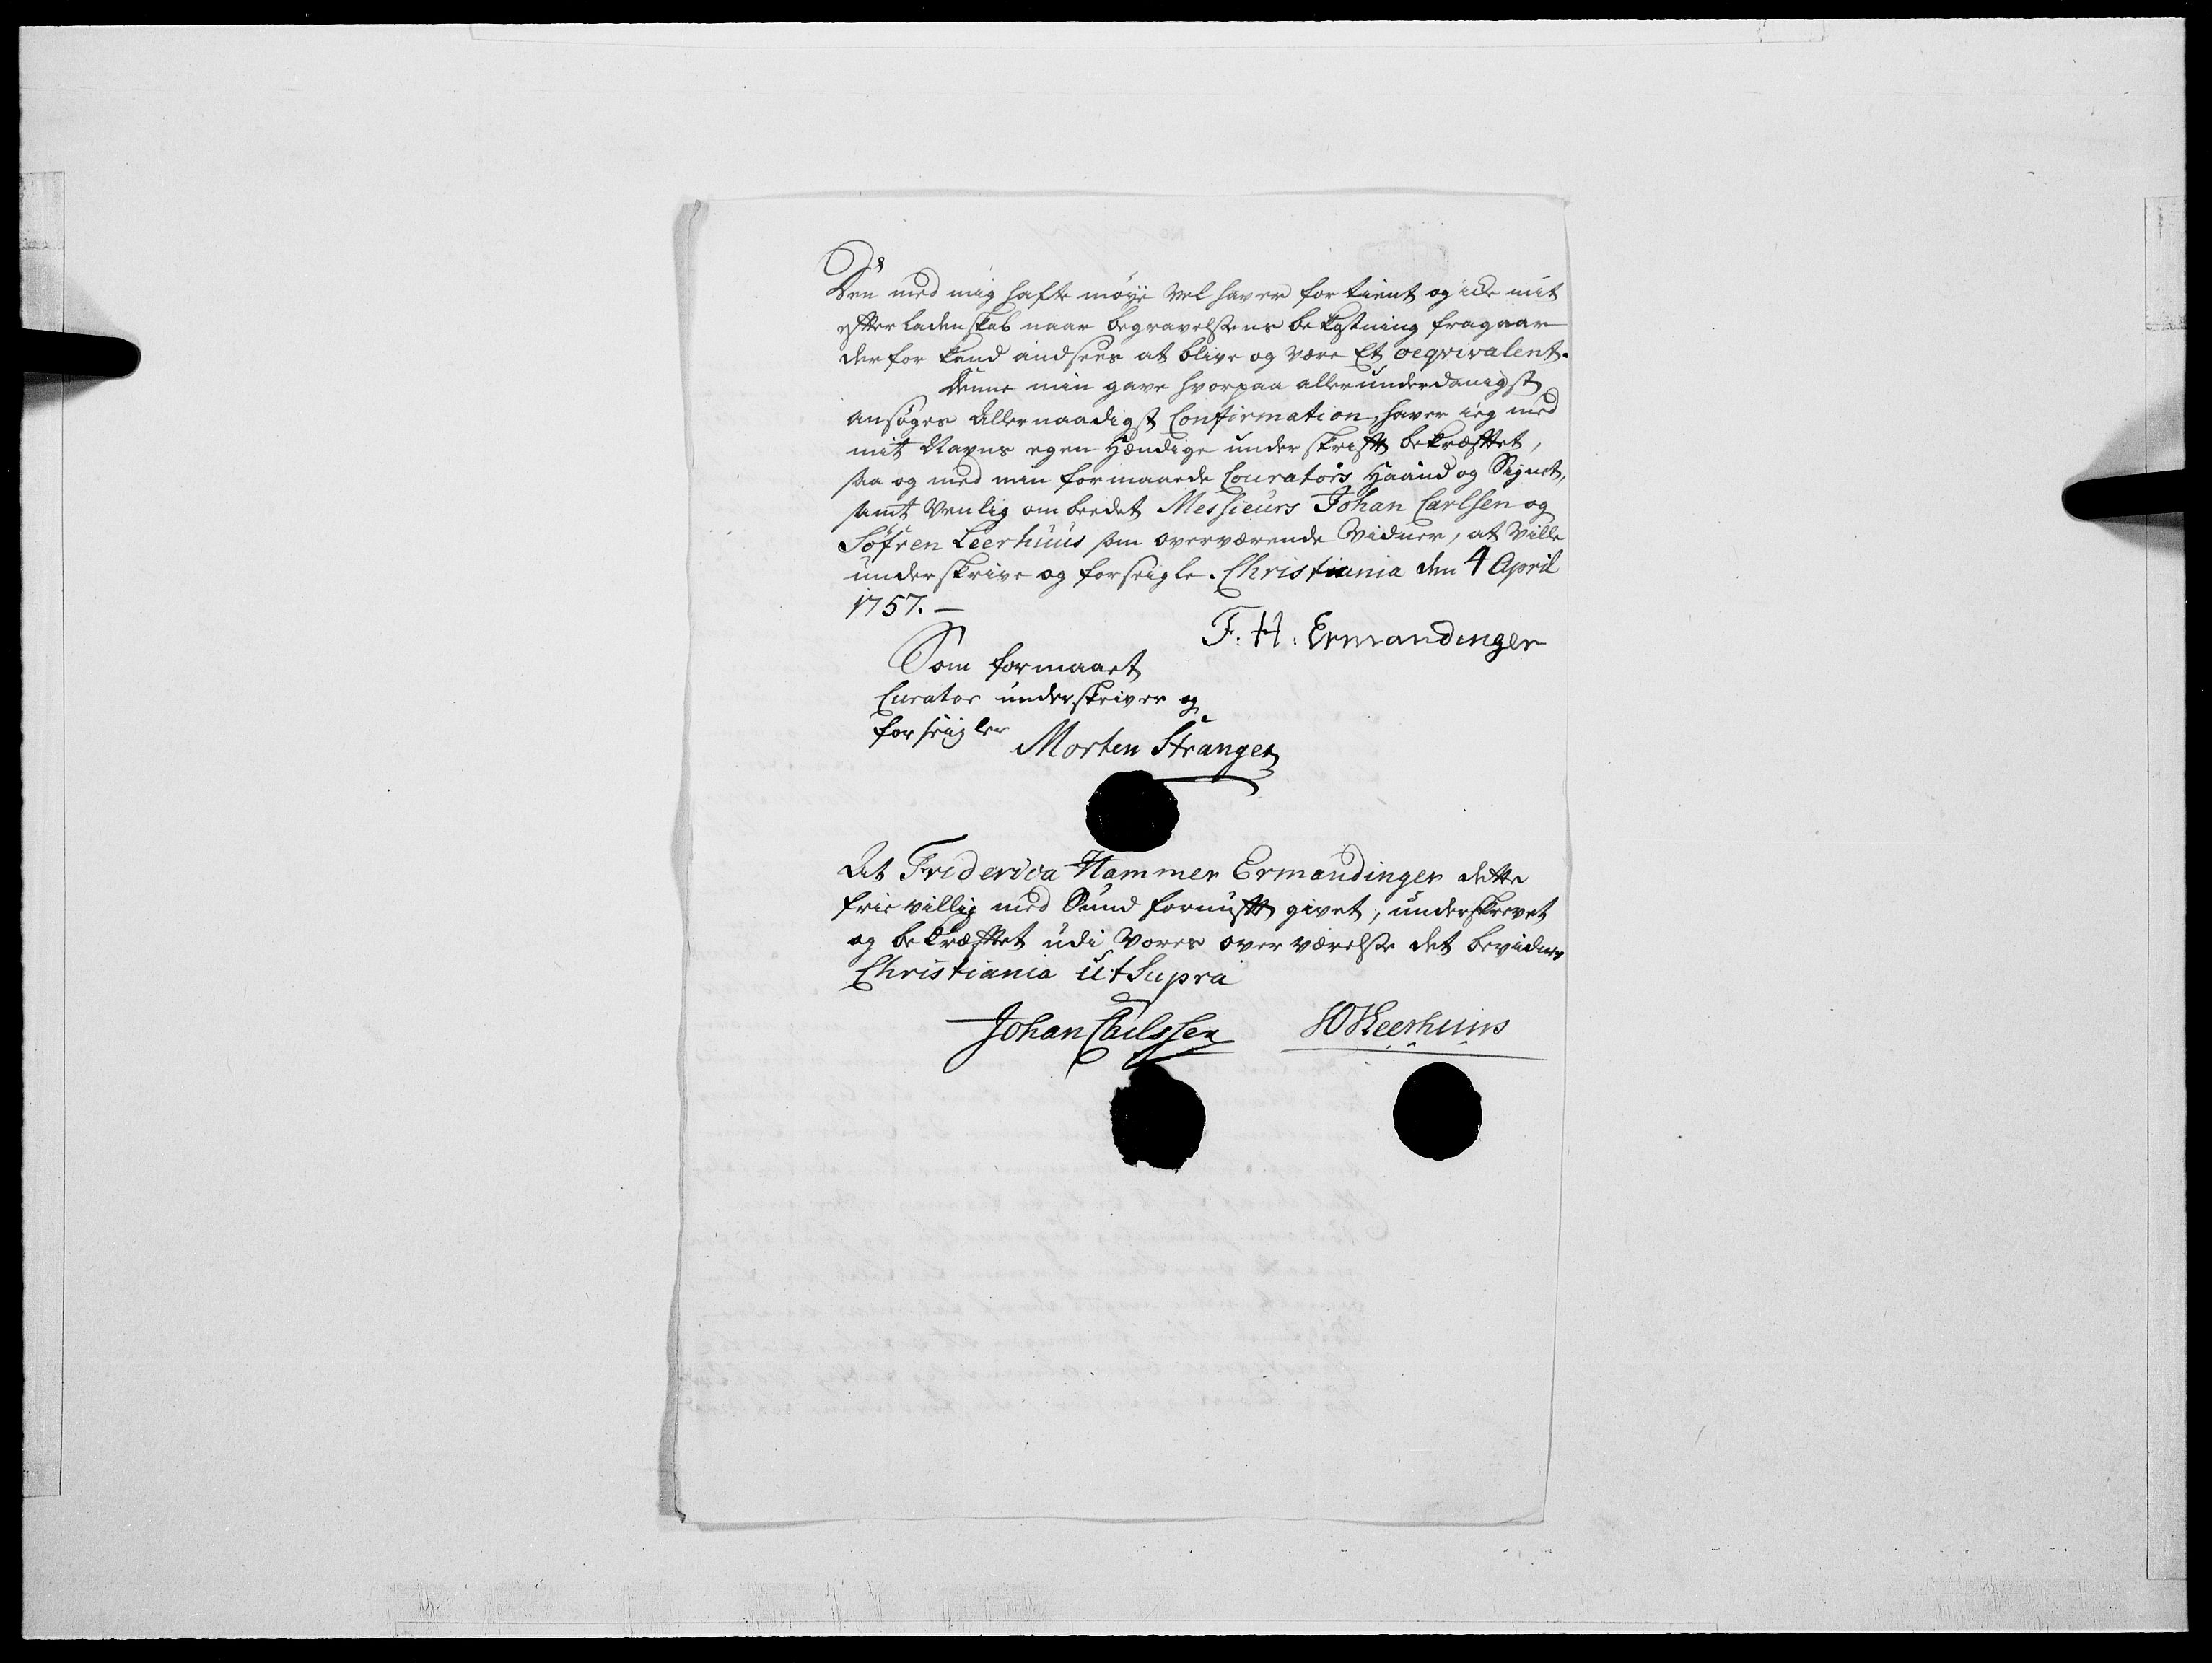 Den med mig hafte møye vel haver fortient og icke mit
effterladenskab naar begravelsens bekostning fragaar
derfor kand andsees at blive og være Et æqvivalent.
Denne min gave hvorpaa allerunderdanigst
ansøges Allernaadigst Confirmation, haver ieg med
mit Navns egen Hændige underskrifft bekræfftet,
saa og med min formaaede Courators Haand og Signet,
samt venlig ombeedet Messieurs Johan Carlsen og
Søfren Leerhuus som overværende Vidner, at ville
underskrive og forseigle. Christiania den 4 April
1757. —
F: H: Ermandinger
Som formaaet
Curator underskriver og
forseigler
Morten Stranger
At Friderica Hammer Ermandinger dette
frievillig med Sund fornufft givet, underskrevet
og bekræfftet udi vores overværelse det bevidner
Christiania ut Supra
Johan Carlssen
SO Leerhuus